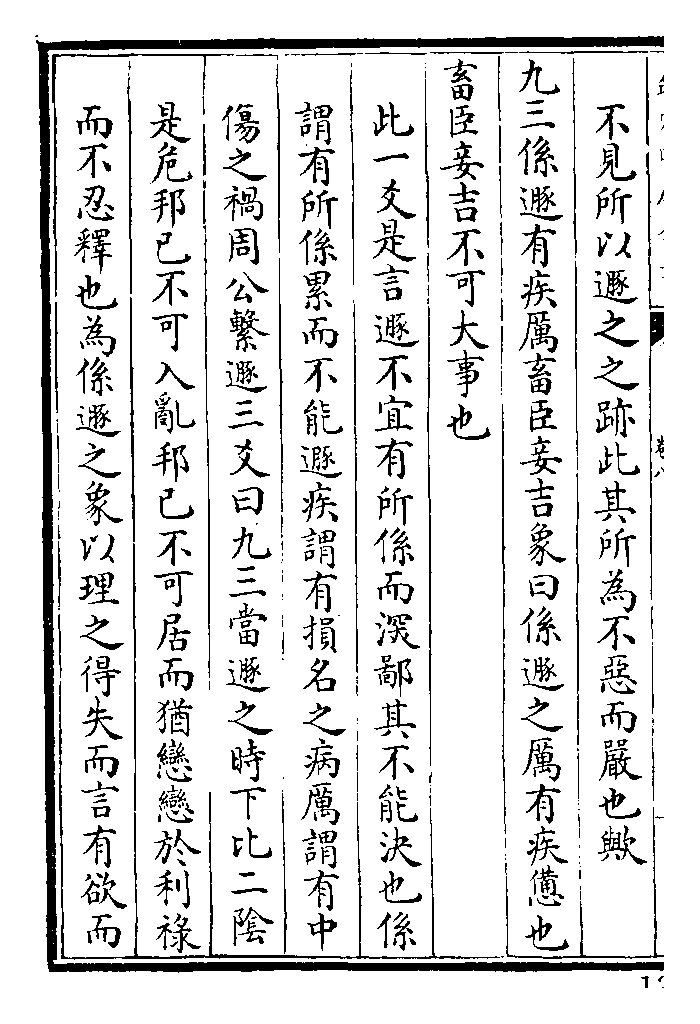 不見所以遯之之跡此其所為不惡而嚴也歟
九三係遯有疾厲畜臣妾吉象曰係遯之厲有疾憊也
畜臣妾吉不可大事也
此一爻是言遯不宜有所係而深鄙其不能決也係
謂有所係累而不能遯疾謂有損名之病厲謂有中
傷之禍周公繫遯三爻曰九三當遯之時下比二陰
是危邦已不可入亂邦已不可居而猶戀戀於利祿
而不忍釋也為係遯之象以理之得失而言有欲而
卷八